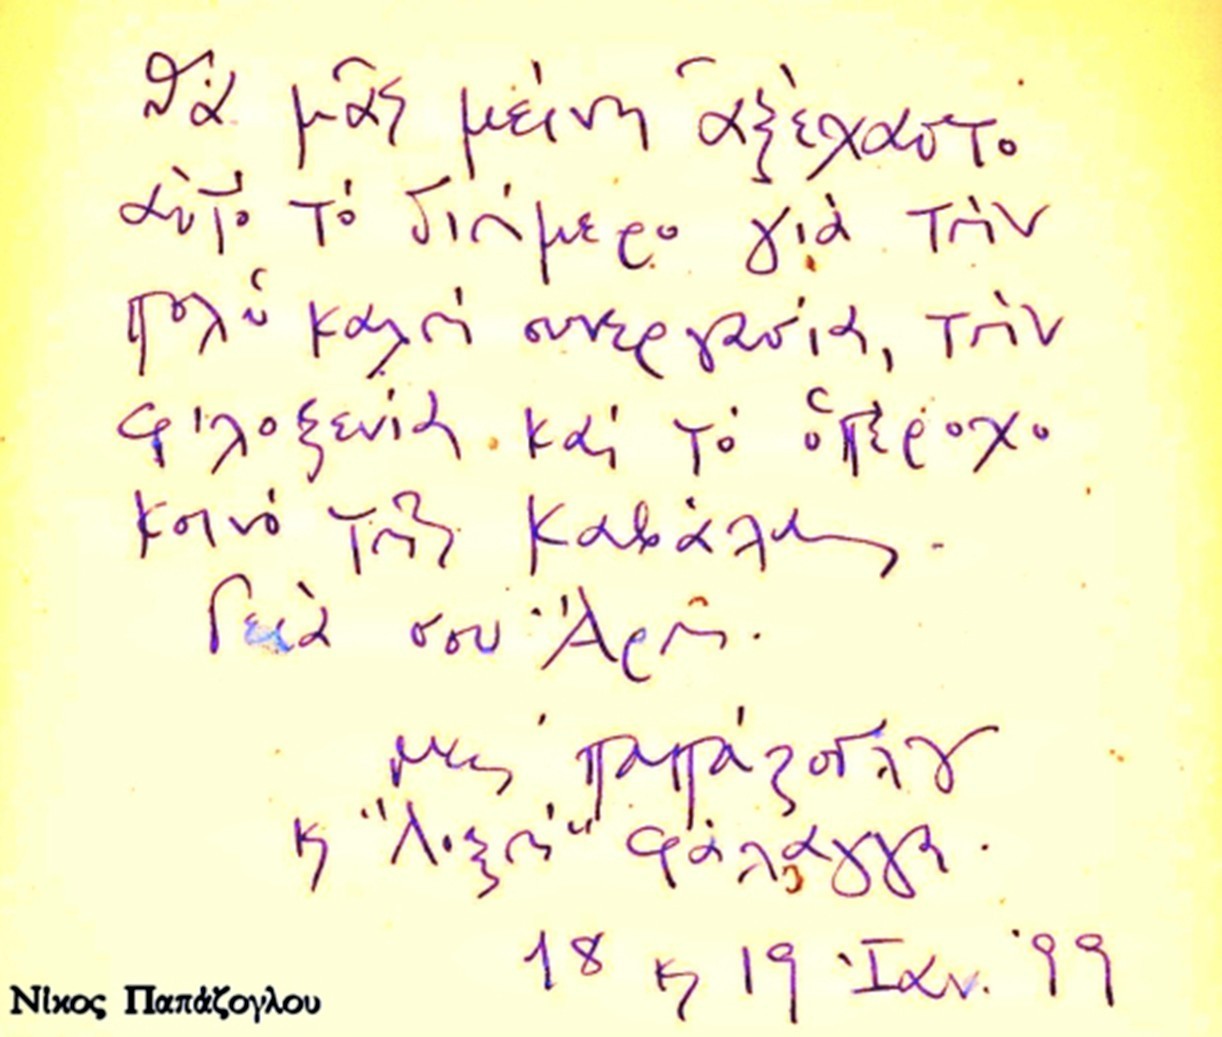 Θὰ μᾶς μείνη ἀξέχαστο
αὐτὸ τὸ διήμερο γιὰ τὴν
πολὺ καλὴ συνεργασία, τὴν
φιλοξενία καὶ τὸ ὑπέροχο
κοινὸ τῆς Καβάλας.
Γειὰ σου Ἄρη.
Παπάζογλου
κ "Λοξὴ" φάλαγγα.
18 κ 19 Ἰαν. '99
Νίκος Παπάζογλου